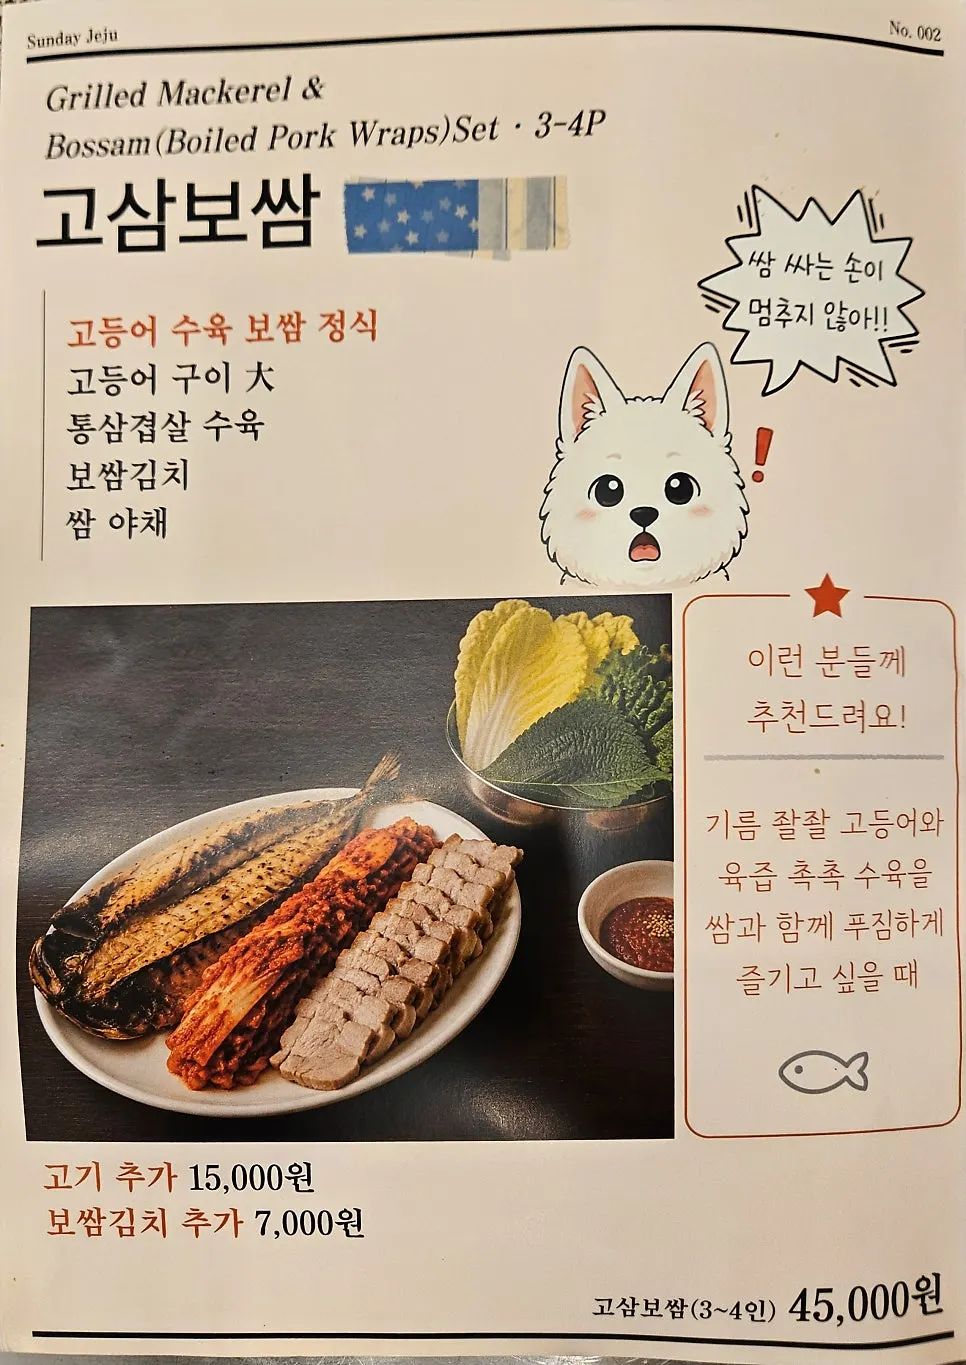 Sunday Jeju
No. 002
Grilled Mackerel &
Bossam(Boiled Pork Wraps)Set · 3-4P
고삼보쌈
쌈 싸는 손이
멈추지 않아!!
고등어 수육 보쌈 정식
고등어 구이 大
통삼겹살 수육
보쌈김치
쌈 야채
이런 분들께
추천드려요!
기름 좔좔 고등어와
육즙 촉촉 수육을
쌈과 함께 푸짐하게
즐기고 싶을 때
고기 추가 15,000원
보쌈김치 추가 7,000원
고삼보쌈(3~4인) 45,000원